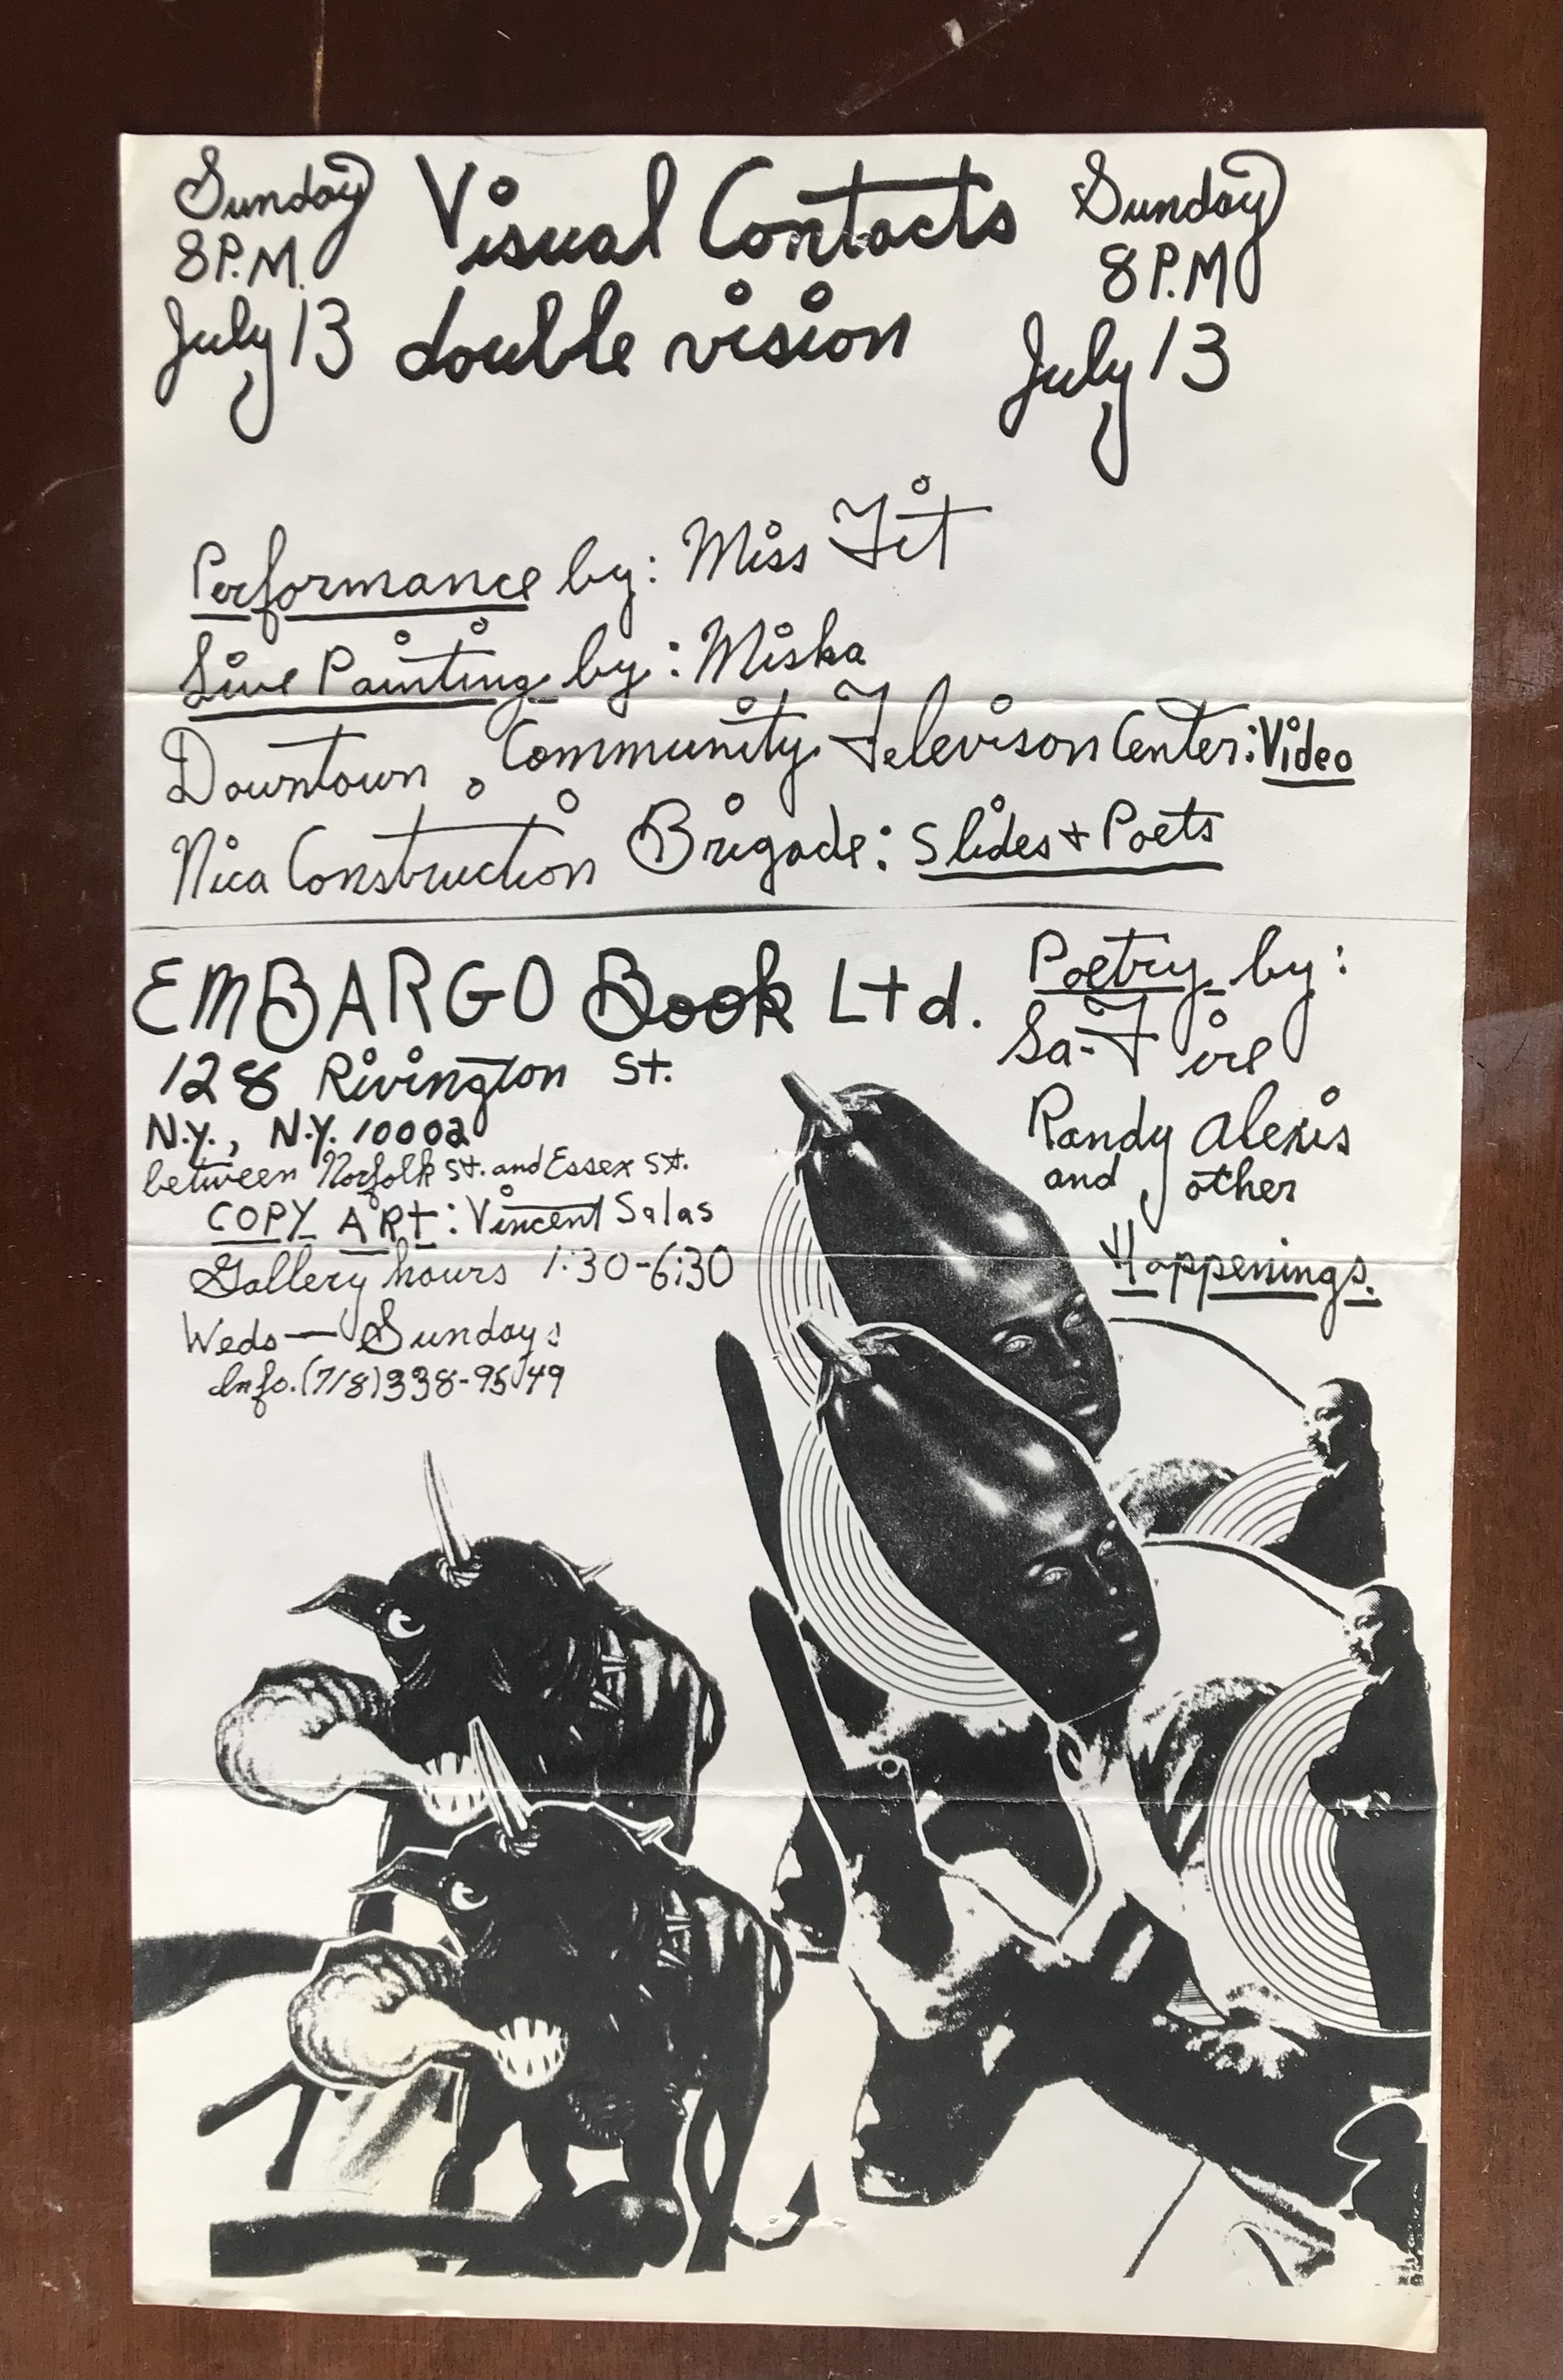 Sunday
8 P.M.
July 13
Visual Contacts
double vision
Sunday
8 P.M
July 13
Performance by: Miss Fit
Live Painting by: Miska
Downtown Community Televison Center: Video
Nica Construction Brigade: Slides + Poets
EMBARGO Book Ltd.
128 Rivington St.
N.Y., N.Y. 10002
between Norfolk St. and Essex St.
COPY ART: Vincent Salas
Gallery hours 1:30-6:30
Weds — Sundays
Info. (718) 338-9549
Poetry by:
Sa-Fire
Randy Alexis
and other
Happenings.